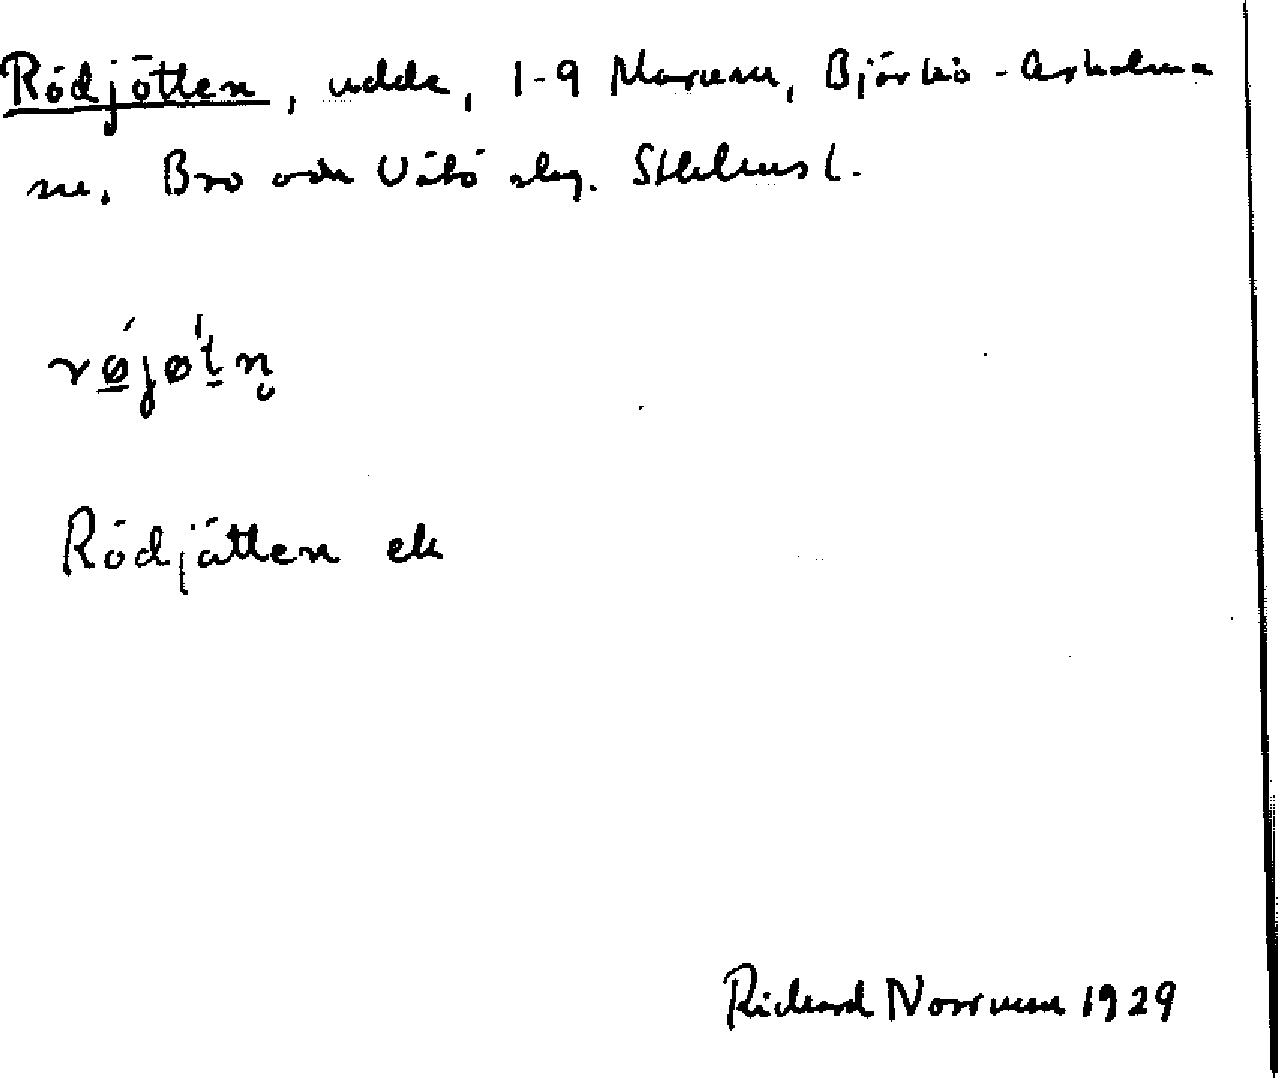 Rödjötten, udde, 1-9 Marum, Björkö-Arholma
sn. Bro och Vätö skg. Sthlms l.
røjøtn̥
Rödjätten ek
Richard Norrman 1929